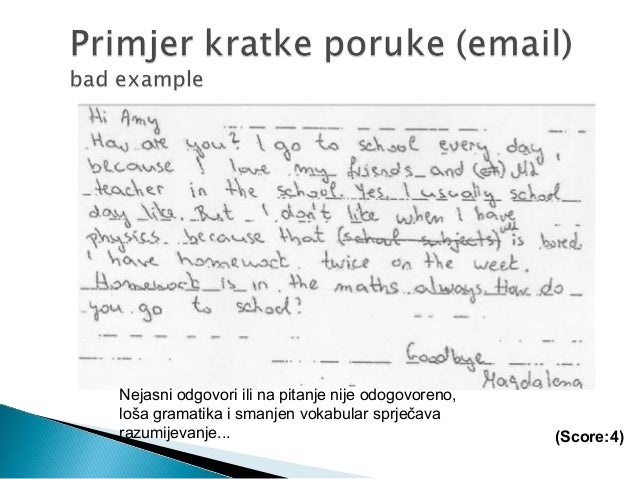 Primjer kratke poruke (email)
bad example
Hi Amy
How are you? I go to school every day,
because I love my friends and
teacher in the school. Yes, I usually school
day like. But I don't like when I have
physics because that (school subjects) is bored.
I have homework twice on the week.
Homework is in the maths always. How do
you go to school?
Goodbye
Magdalena
Nejasni odgovori ili na pitanje nije odogovoreno,
loša gramatika i smanjen vokabular sprječava
razumijevanje...
(Score:4)